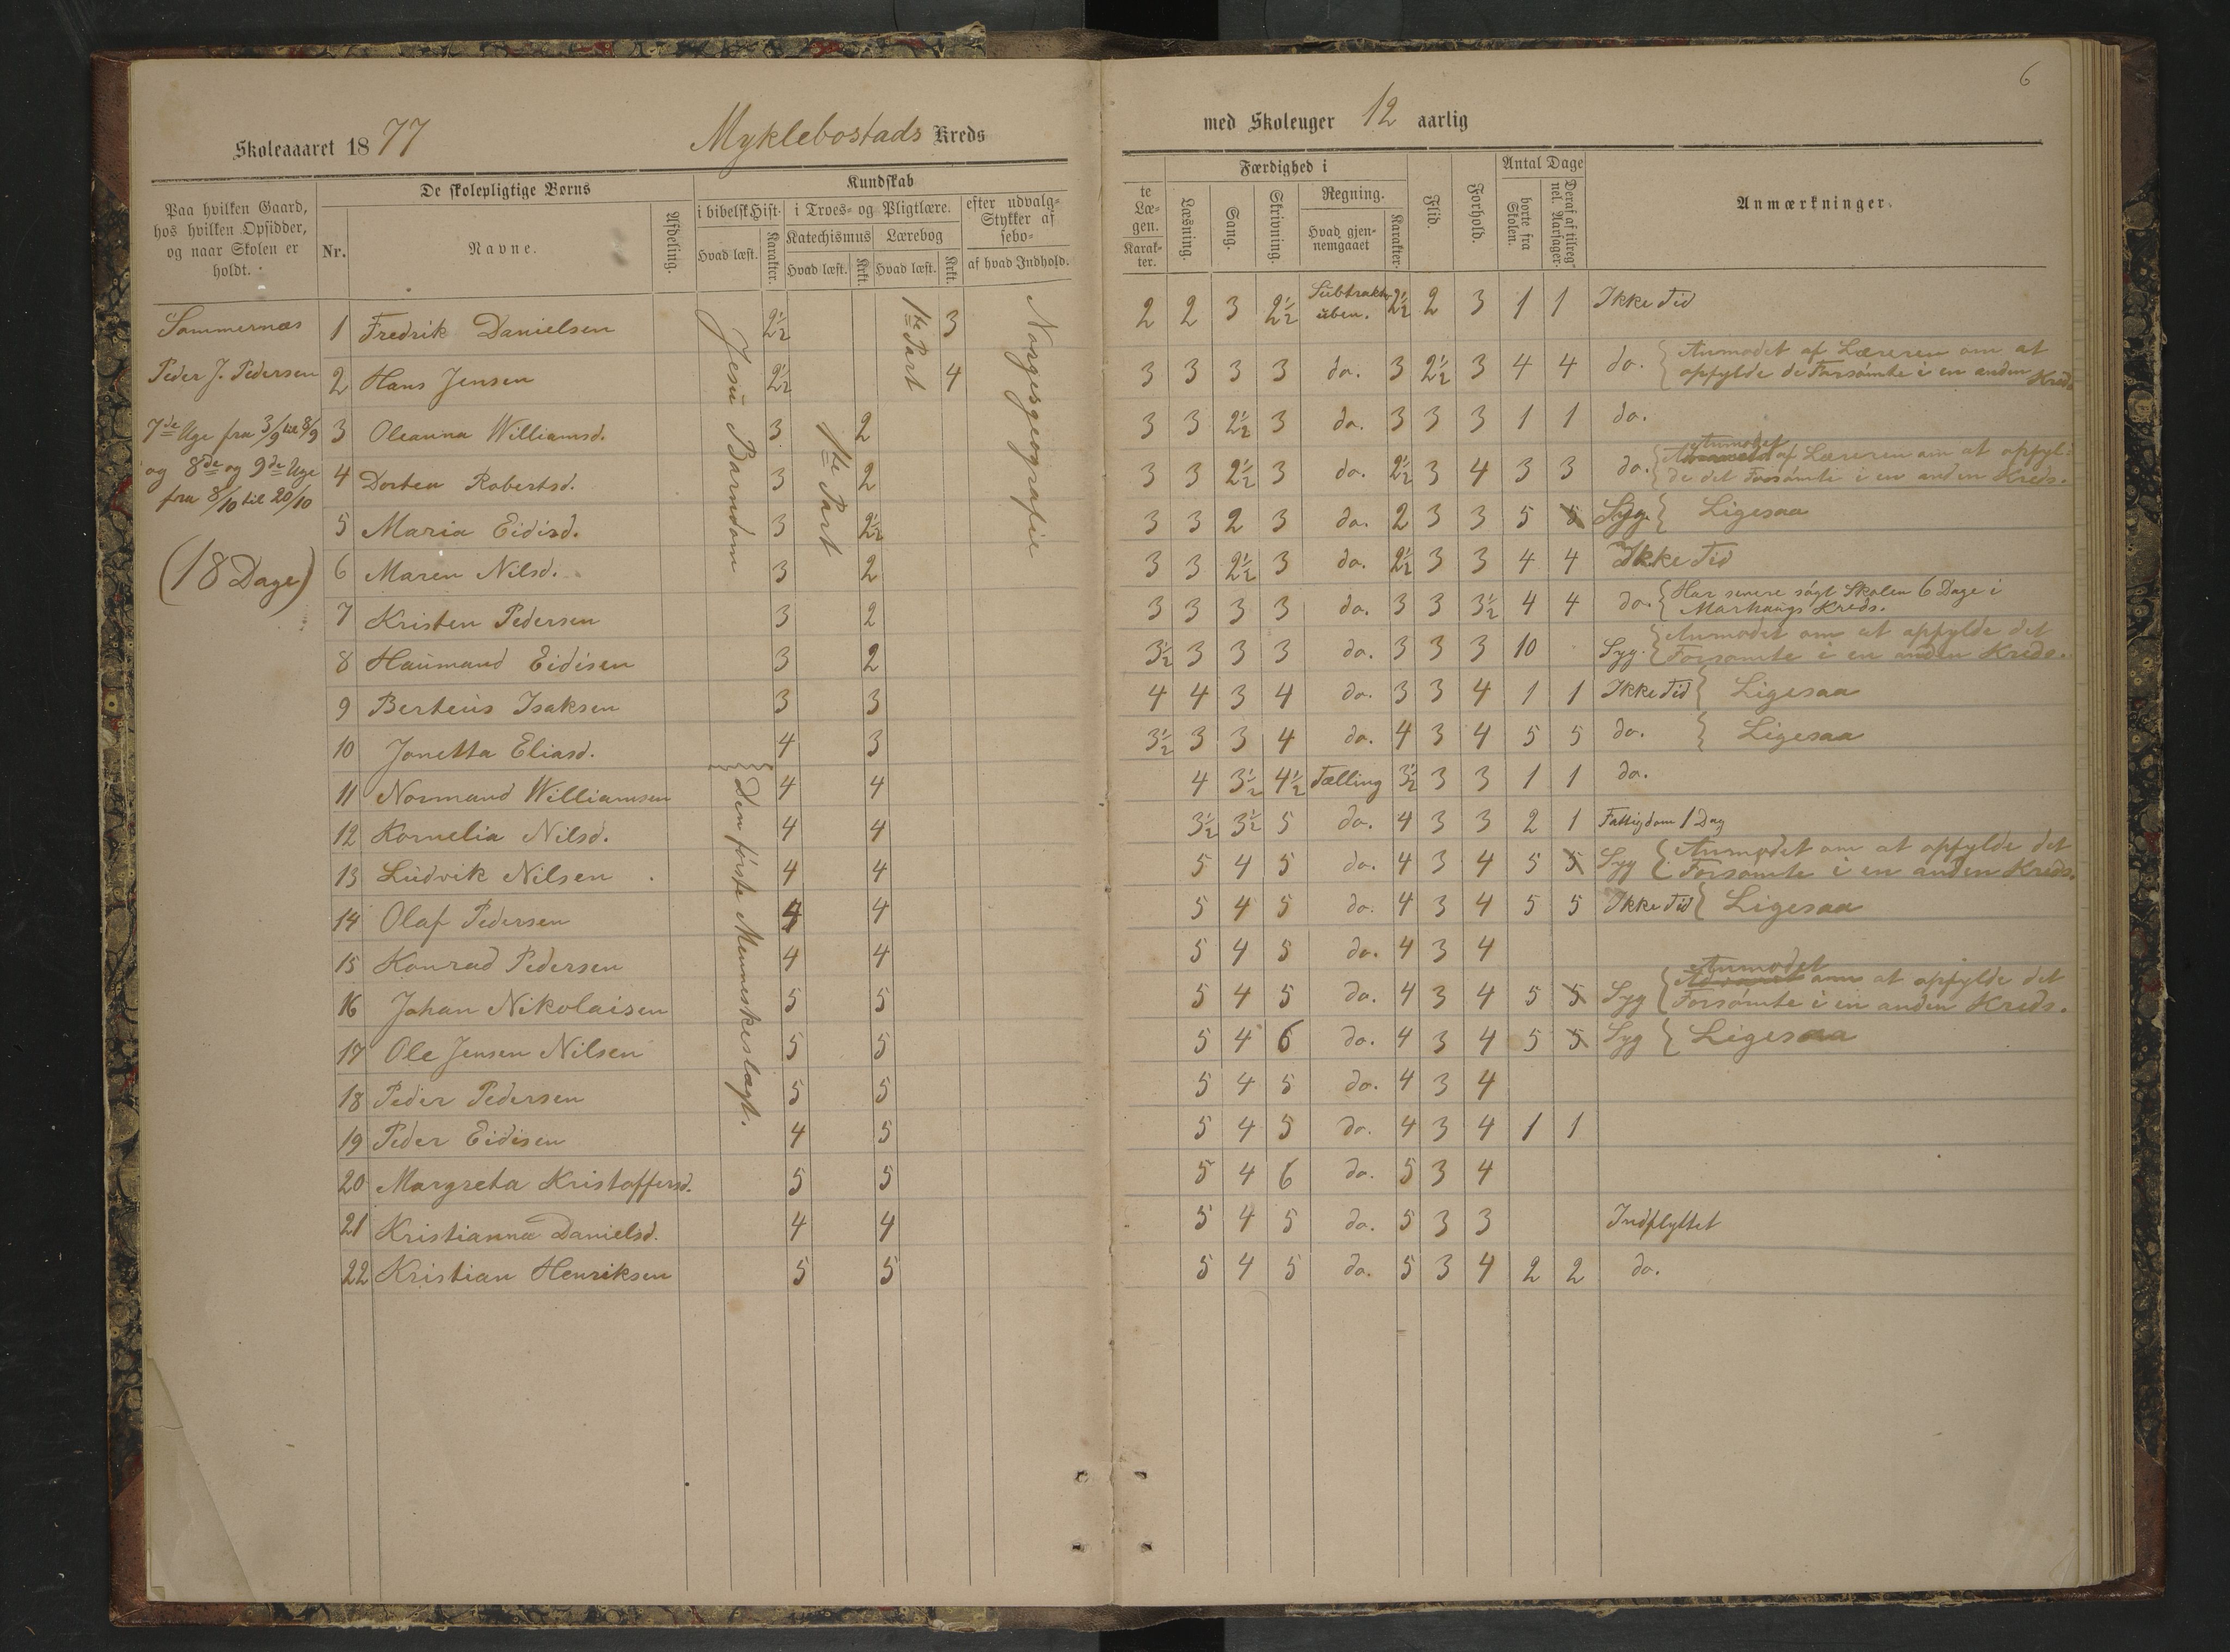 6
Skoleaaaret 1877 Myklebostads Kreds
med Skoleuger 12 aarlig
Paa hvilken Gaard, hos hvilken Opsidder, og naar Skolen er holdt.
De skolepligtige Børns
Nr. Navne. Afdeling.
Kundskab
i bibelsk Hist. i Troes- og Pligtlære. efter udvalg- Stykker af sebo-
Hvad læst. Karakter. Katechismus Lærebog
Hvad læst. Krkt. Hvad læst. Krkt. af hvad Indhold.
te Læ- gen. Karak- ter.
Færdighed i
Læsning. Sang. Skrivning. Regning.
Hvad gjen- nemgaaet Karakter.
Flid. Forhold.
Antal Dage
borte fra Skolen. Deraf af tilreg- nel. Aarsager.
Anmærkninger.
Sommernæs
Peder J. Pedersen
7de Uge fra 3/9 til 8/9
og 8de og 9de Uge
fra 8/10 til 20/10
(18 Dage)
Jesu Barndom
Den første Menneskeslægt.
1ste Part
1ste Part
Norgesgeografie
1 Fredrik Danielsen 2½ 3 2 2 3 2½ Subtrakt. uben. 2½ 2 3 1 1 Ikke Tid
2 Hans Jensen 2½ 4 3 3 3 3 do. 3 2½ 3 4 4 do. { Anmodet af Læreren om at
opfylde de Forsømte i en anden Kreds
3 Oleanna Williamsd. 3 2 3 3 2½ 3 do. 3 3 3 1 1 do.
4 Dortea Robertsd. 3 2 3 3 2½ 3 do. 2½ 3 4 3 3 do. { Anmodet af Læreren om at opfyl-
de det Forsømte i en anden Kreds.
5 Maria Eidisd. 3 2½ 3 3 2 3 do. 2 3 3 5 5 Syg. { Ligesaa
6 Maren Nilsd. 3 2 3 3 2½ 3 do. 2½ 3 3 4 4 Ikke Tid
7 Kristen Pedersen 3 2 3 3 3 3 do. 3 3 3½ 4 4 do. { Har senere søgt Skolen 6 Dage i
Marhaugs Kreds.
8 Haumand Eidisen 3 2 3½ 3 3 3 do. 3 3 3 10 Syg. { Anmodet om at opfylde det
Forsømte i en anden Kreds.
9 Berteus Isaksen 3 3 4 4 3 4 do. 3 3 4 1 1 Ikke Tid { Ligesaa
10 Jonetta Eliasd. 4 3 3½ 3 3 4 do. 4 3 4 5 5 do. { Ligesaa
11 Normand Williamsen 4 4 4 3½ 4½ Tælling 3½ 3 3 1 1 do.
12 Kornelia Nilsd. 4 4 3½ 3½ 5 do. 4 3 3 2 1 Fattigdom 1 Dag
13 Ludvik Nilsen 4 4 5 4 5 do. 4 3 4 5 5 Syg { Anmodet om at opfylde det
Forsømte i en anden Kreds.
14 Olaf Pedersen 4 4 5 4 5 do. 4 3 4 5 5 Ikke Tid { Ligesaa
15 Konrad Pedersen 4 4 5 4 5 do. 4 3 4
16 Johan Nikolaisen 5 5 5 4 5 do. 4 3 4 5 5 Syg { Anmodet om at opfylde det
Forsømte i en anden Kreds.
17 Ole Jensen Nilsen 5 5 5 4 6 do. 4 3 4 5 5 Syg { Ligesaa
18 Peder Pedersen 5 5 5 4 5 do. 4 3 4
19 Peder Eidisen 4 5 5 4 5 do. 4 3 4 1 1
20 Margreta Kristoffersd. 5 5 5 4 6 do. 5 3 4
21 Kristianna Danielsd. 4 4 5 4 5 do. 5 3 3 Indflyttet
22 Kristian Henriksen 5 5 5 4 5 do. 5 3 4 2 2 do.